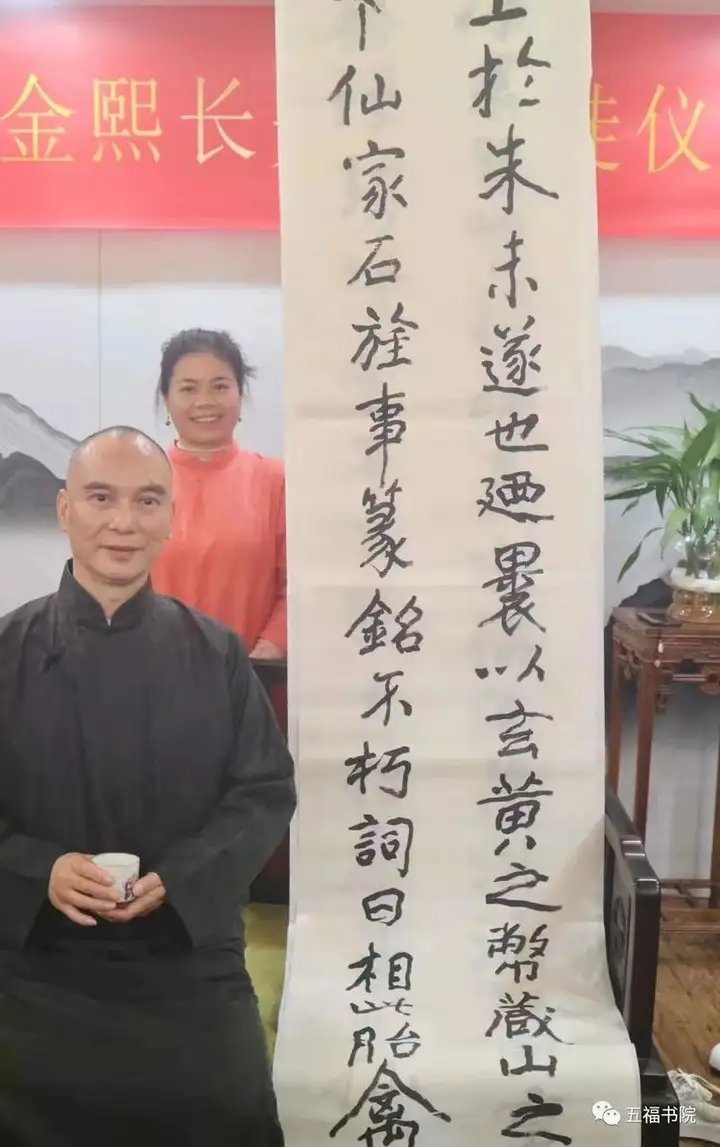 金熙长
仪
於朱未遂也廼裹以玄黄之幣藏山之
下仙家石旌事篆銘不朽詞曰相此胎禽
五福书院